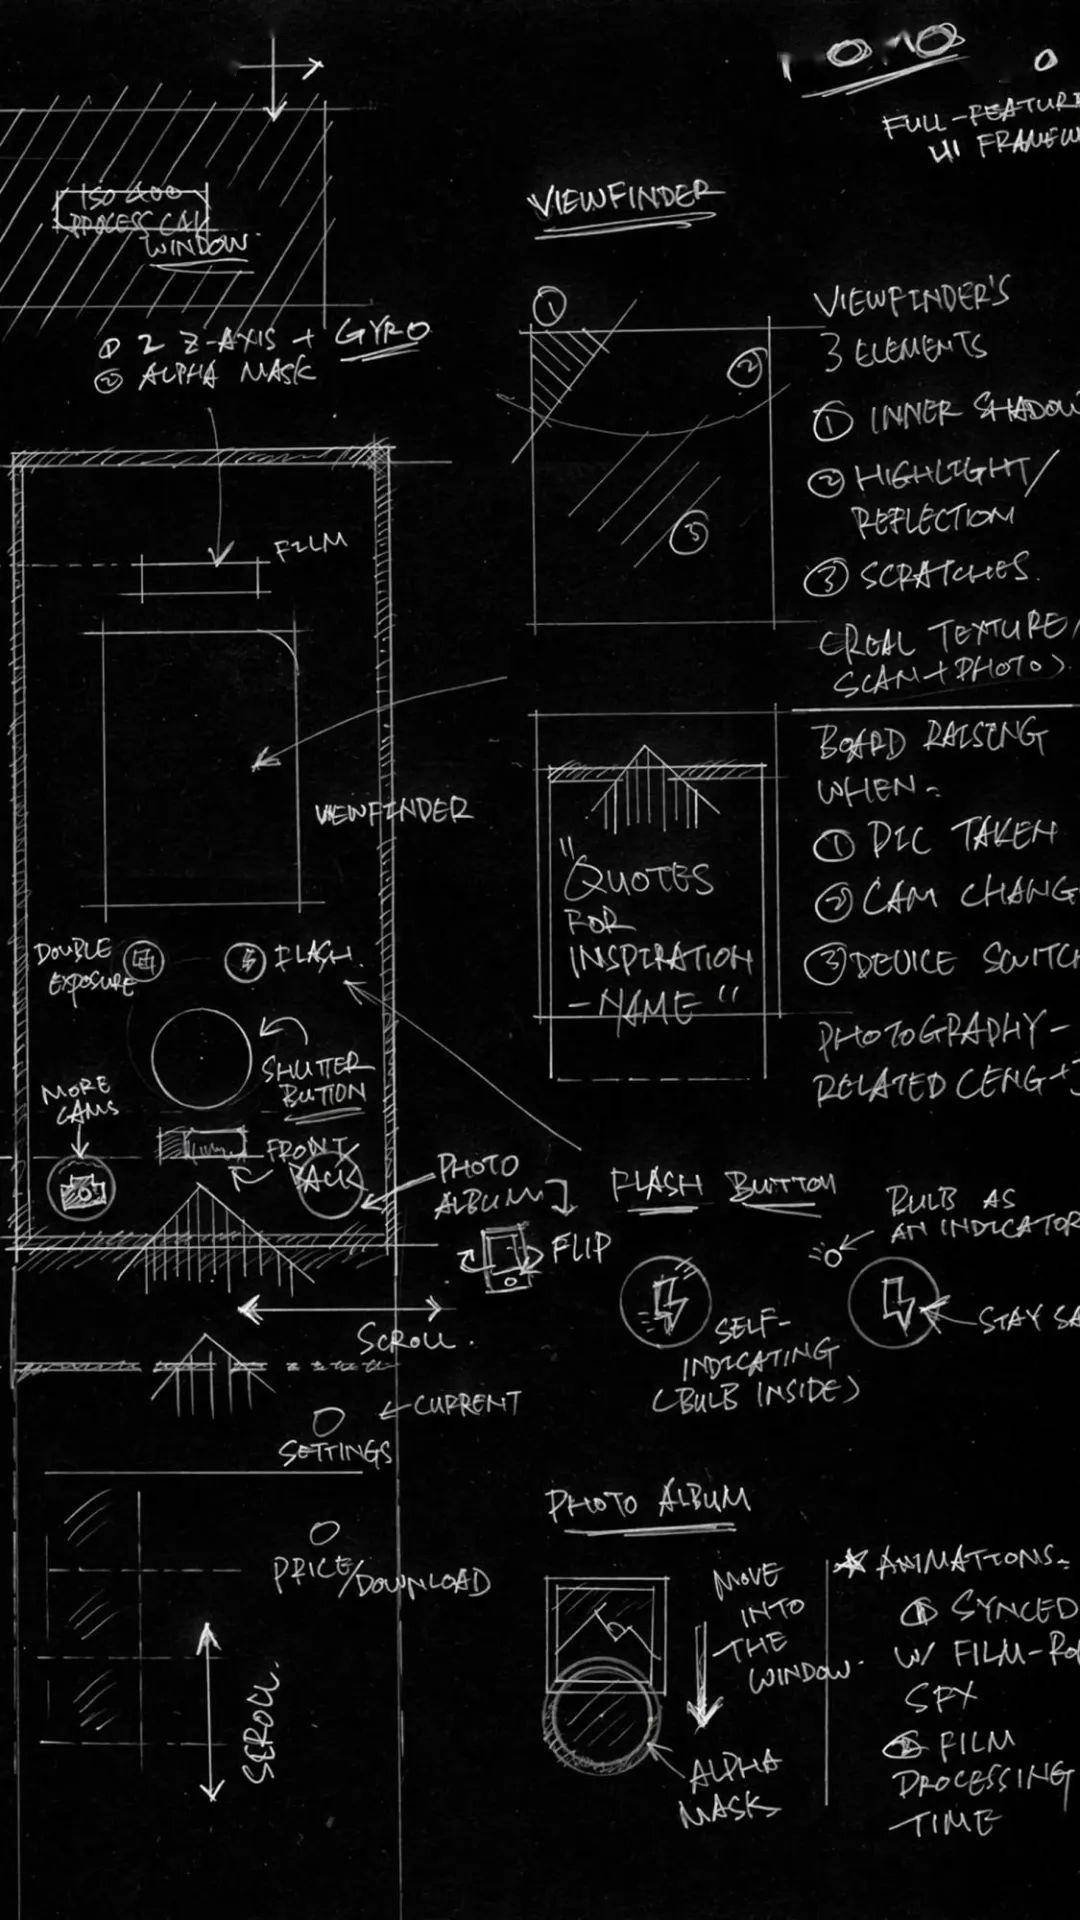 FULL-FEATURE
UI FRAMEW
ISO 400
PROCESS
WINDOW.
① 2 Z-AXIS + GYRO
② ALPHA MASK
FILM
VIEWFINDER
DOUBLE
EXPOSURE
FLASH.
SHUTTER
BUTTON
MORE
CAMS
FRONT/
BACK
PHOTO
ALBUM
FLIP
SCROLL.
CURRENT
SETTINGS
PRICE/DOWNLOAD
SCROLL.
VIEWFINDER
①
②
③
VIEWFINDER'S
3 ELEMENTS
① INNER SHADOW
② HIGHLIGHT/
REFLECTION
③ SCRATCHES.
(REAL TEXTURE/
SCAN+PHOTO)
"QUOTES
FOR
INSPIRATION
-NAME"
BOARD RAISING
WHEN-
① PIC TAKEN
② CAM CHANG
③ DEVICE SWITCH
PHOTOGRAPHY-
RELATED
FLASH BUTTON
SELF-
INDICATING
(BULB INSIDE)
BULB AS
AN INDICATOR
STAY SA
PHOTO ALBUM
MOVE
INTO
THE
WINDOW.
ALPHA
MASK
* ANIMATIONS-
① SYNCED
W/ FILM-RO
SFX
② FILM
PROCESSING
TIME